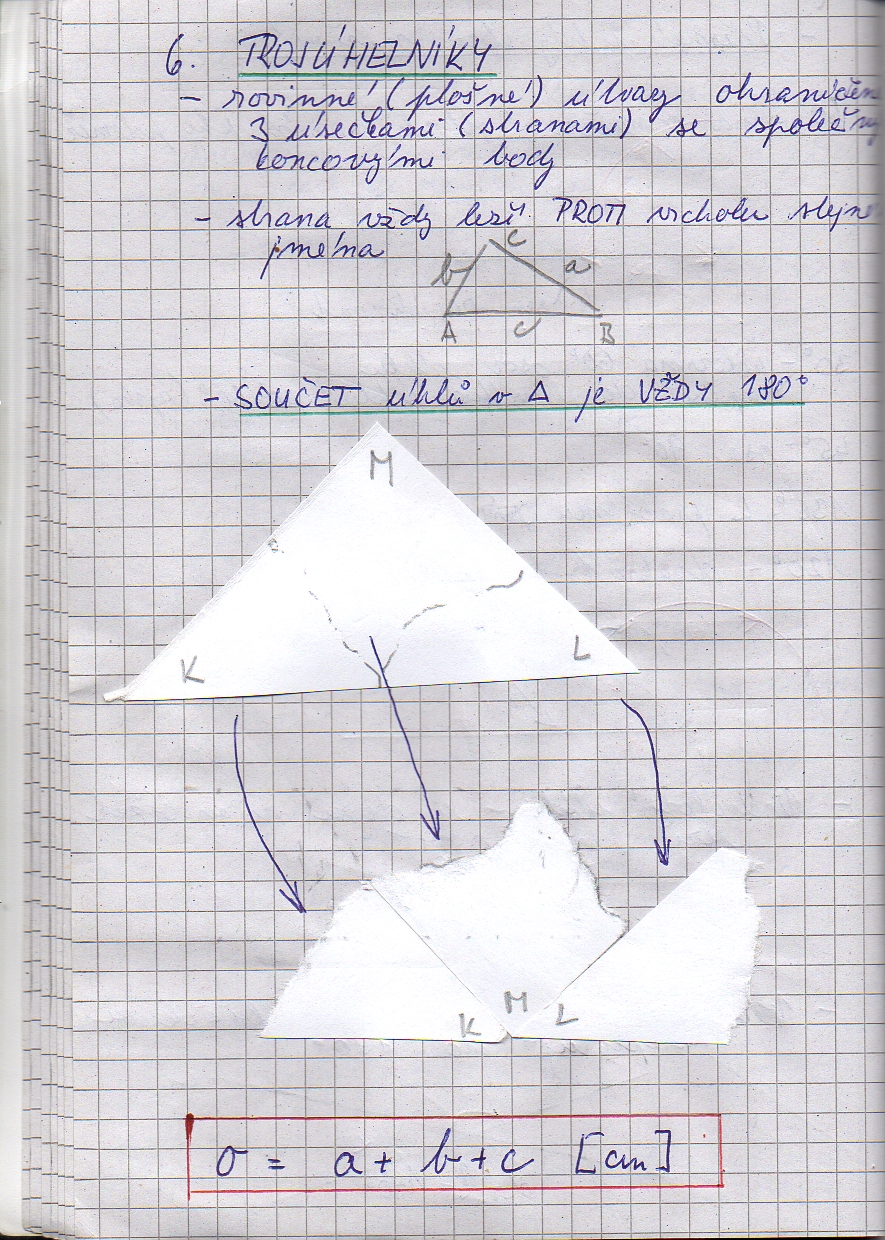 6. TROJÚHELNÍKY
- rovinné (plošné) útvary ohraničen
3 úsečkami (stranami) se společný
koncovými body
- strana vždy leží PROTI vrcholu stejn
jména
C
b a
A c B
- SOUČET úhlů v Δ je VŽDY 180°
M
K L
K M L
o = a + b + c [cm]